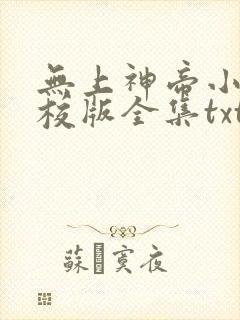 無上神帝小
校版全集txt
蘇 寞夜